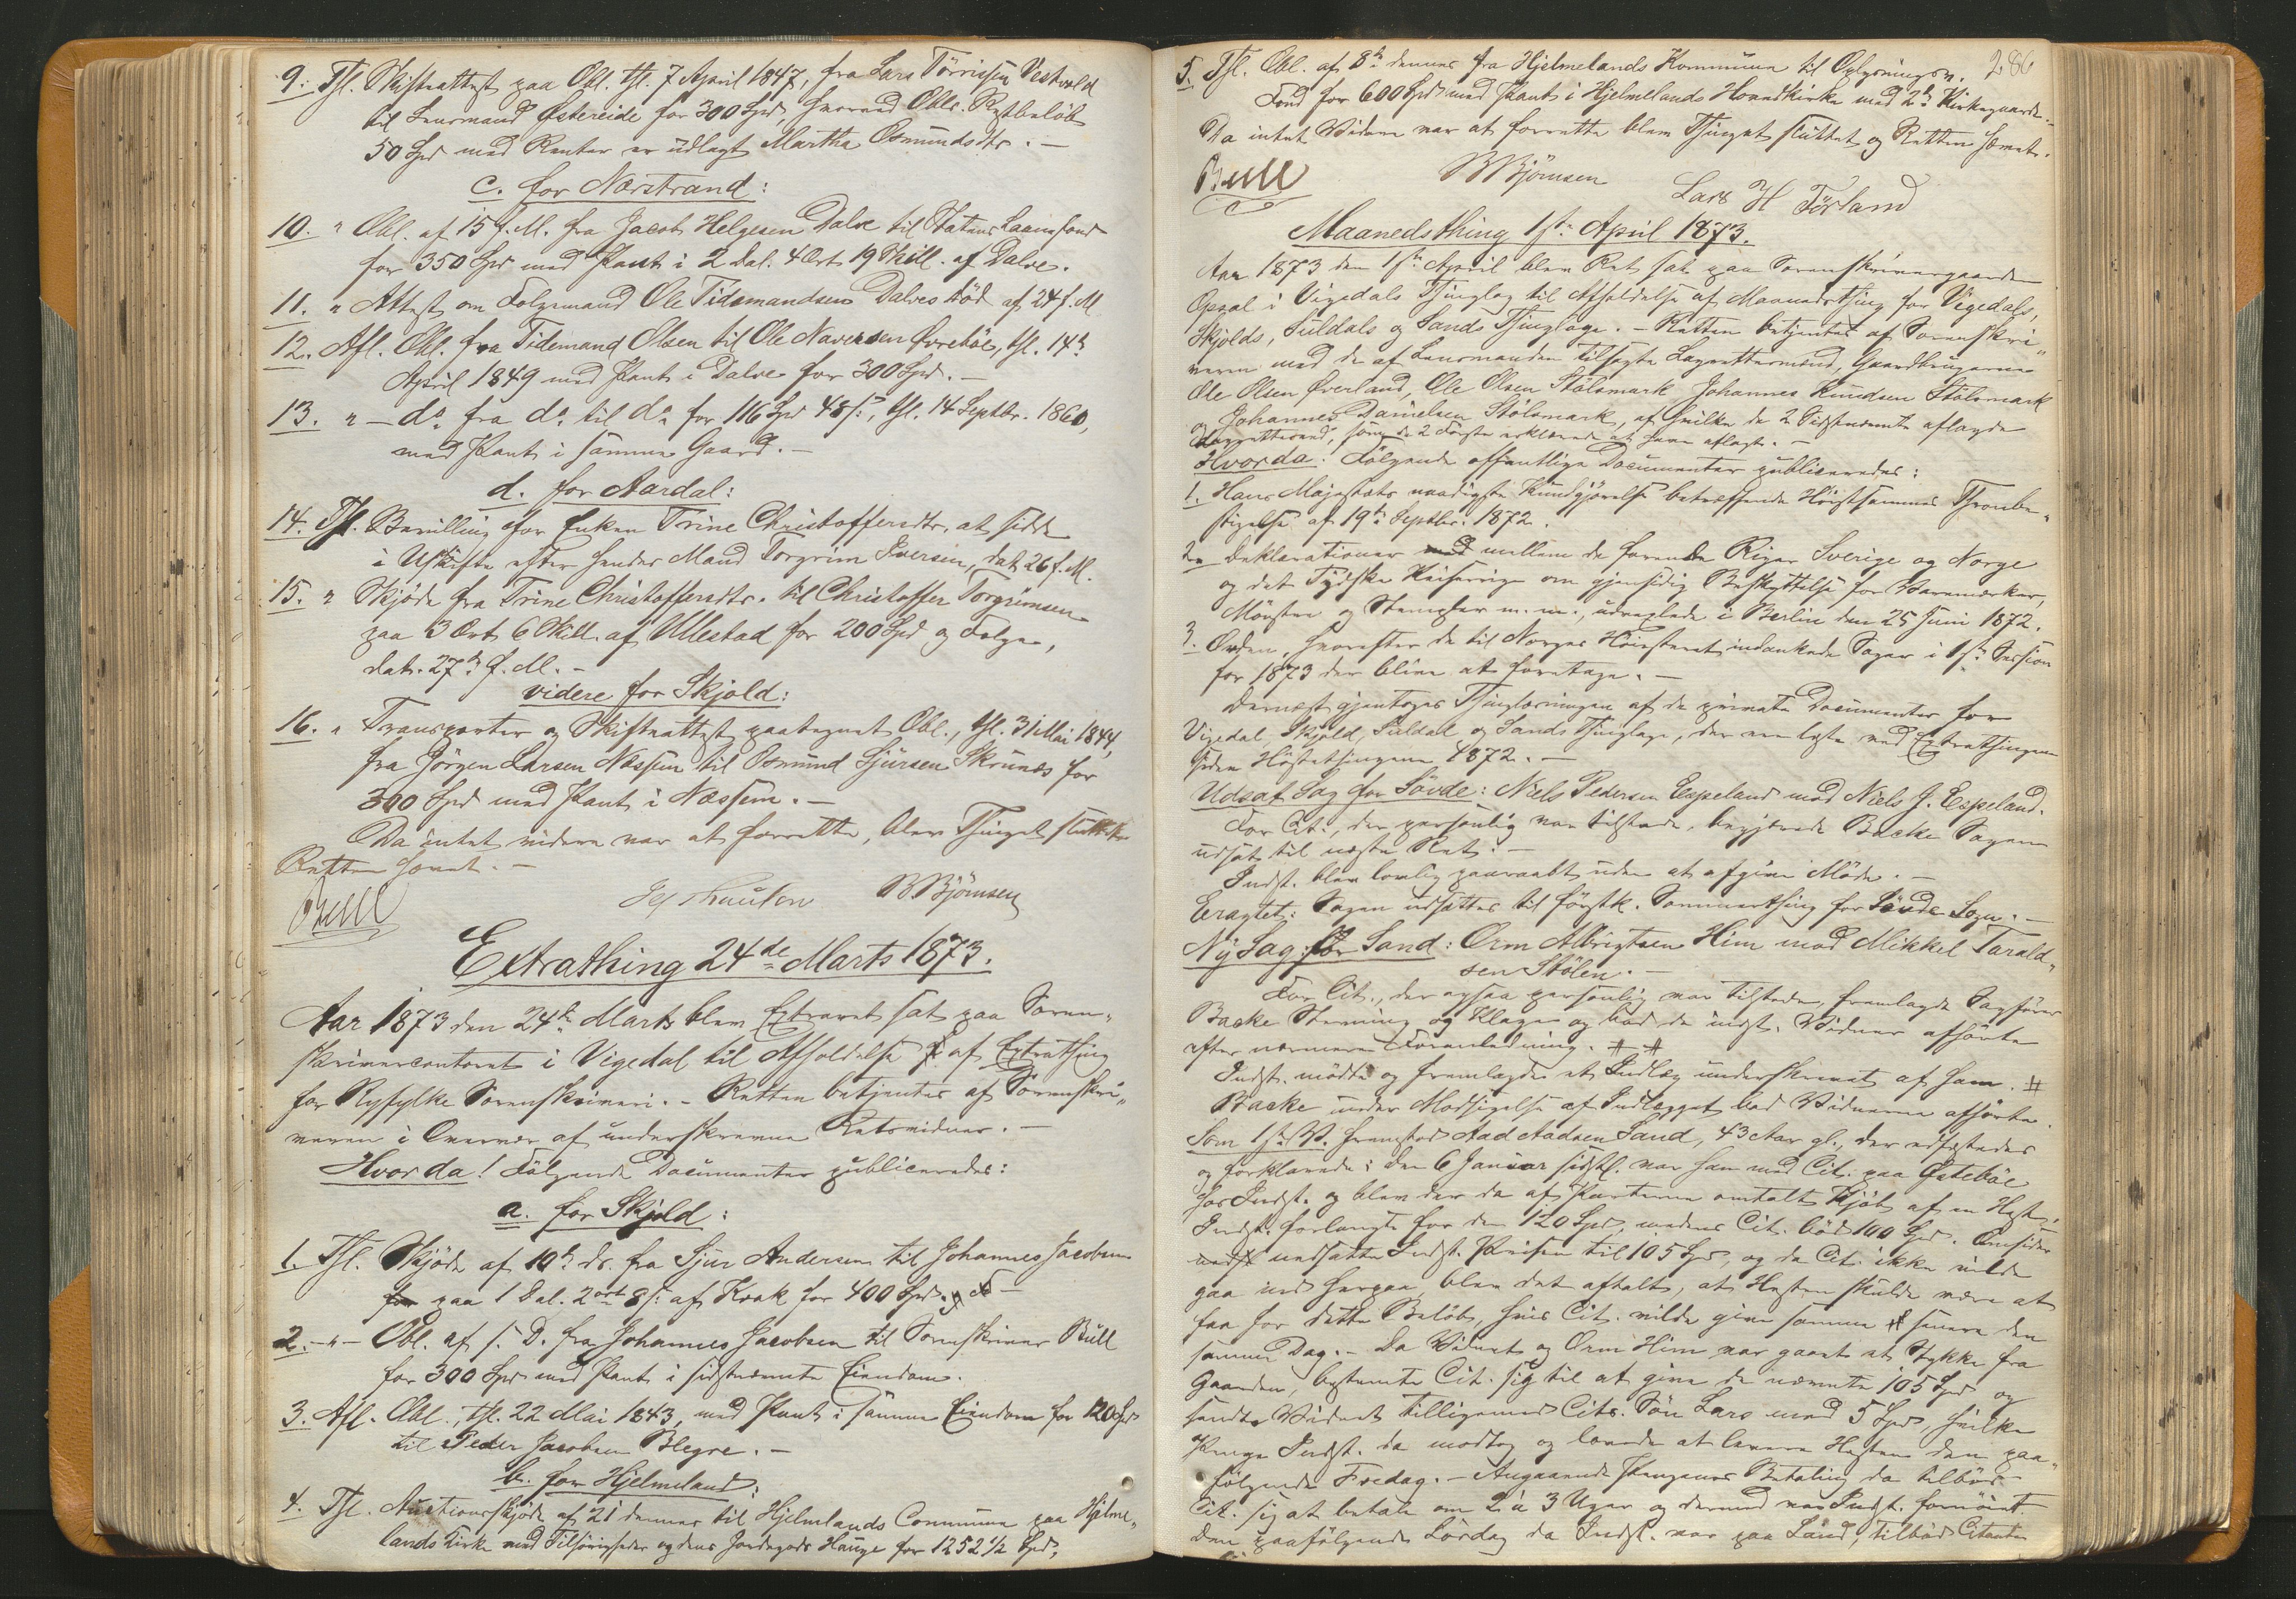 9. Thl. Skifteattest paa Obl. thl. 7 April 1847, fra Lars Törrisen Vestvold
til Lensmand Østereide for 300 Spd, hvorved Obls. Restbeløb
50 Spd med Renter er udlagt Martha Osmundsdtr. –
c. for Nærstrand:
10. " Obl. af 15 f. M. fra Jacob Helgesen Dalve til Statens Laanefond
for 350 Spd med Pant i 2 Dal. 4 Ort 19 Skill. af Dalve.
11. " Attest om Folgemand Ole Tidemandsens Dalves Död af 24 f. M
12. Afl. Obl. fra Tidemand Olsen til Ole Naversen Øvreböe, thl. 14de
April 1849 med Pant i Dalve for 300 Spd. –
13. " – do fra do til do for 116 Spd 48 s:, thl. 14 Septbr. 1860,
med Pant i samme Gaard. –
d. for Aardal:
14. Thl. Bevilling for Enken Trine Christoffersdtr. at sidde
i Uskifte efter hendes Mand Torgrim Iversen, dat 26 f. M.
15. " Skjöde fra Trine Christoffersdtr. til Christoffer Torgrimsen
paa 3 Ort 6 Skill. af Ullestad for 200 Spd og Folge,
dat. 27de f. M. –
videre for Skjold:
16. " Transporter og Skifteattest paategnet Obl., thl. 31 Mai 1844,
fra Jörgen Larsen Næssum til Osmund Sjursen Skrunæs for
300 Spd med Pant i Næssum. –
Da intet videre var at forrette, blev Thinget sluttet
Retten hævet. –
Bull BBjörnsen
Extrathing 24de Marts 1873.
Aar 1873 den 24de Marts blev Extraret sat paa Soren-
skrivercontoret i Vigedal til Afholdelse af Extrathing
for Ryfylke Sorenskriveri. – Retten betjentes af Sorenskri-
veren i Overvær af underskrevne Retsvidner. –
Hvorda! Fölgende Documenter publiceredes:
a. for Skjold:
1. Thl. Skjöde af 10de ds. fra Sjur Andersen til Johannes Jacobsen
for paa 1 Dal. 2 ort 8 s: af Krak for 400 Spd. og F –
2. – " – Obl. af s. D. fra Johannes Jacobsen til Sorenskriver Bull
for 300 Spd med Pant i sidstnævnte Eiendom.
3. Afl. Obl., thl. 22 Mai 1843, med Pant i samme Eiendom for 120 Spd
til Peder Jacobsen Blegre. –
b. for Hjelmeland:
4. Thl. Auctionsskjöde af 21 dennes til Hjelmelands Commune paa Hjelme-
lands Kirke med Tilhörigheder og dens Jordegods Hauge for 1252 1/2 Spd,
286
5. Thl. Obl. af 8de dennes fra Hjelmelands Kommune til Oplysningsv.
Fond for 600 Spd med Pant i Hjelmelands Hovedkirke med 2de Kirkegaarde. –
Da intet Videre var at forrette blev Thinget sluttet og Retten hævet.
Bull BBjörnsen Lars H Förland
Maanedsthing 1ste April 1873.
Aar 1873 den 1ste April blev Ret sat paa Sorenskrivergaarden
Opsal i Vigedals Thinglag til Afholdelse af Maanedsthing for Vigedals,
Skjolds, Suldals og Sands Thinglage. – Retten betjentes af Sorenskri-
veren med de af Lensmanden tilsagte Lagrettesmænd, Gaardbrugerne
Ole Olsen Överland, Ole Olsen Stölsmark, Johannes Knudsen Stölsmark
og Johannes Danielsen Stölsmark, af hvilke de 2 Sidstnævnte aflagde
Lagretteseed, som de 2 Förste erklærede at have aflagt. –
Hvorda! Fölgende offentlige Documenter publiceredes:
1. Hans Majestæts naadigste Kundgjörelse betræffende Höistsammes Thronbe-
stigelse af 19de Septbr. 1872.
2. Deklarationer med mellem de forenede Riger Sverige og Norge
og det Tydske Keiserrige om gjensidig Beskyttelse for Varemærker,
Mönster og Stempler m. m., udvexlede i Berlin den 25 Juni 1872.
3. Orden, hvorefter de til Norges Höiesteret indankede Sager i 1ste Session
for 1873 der blive at foretage. –
Dernæst gjentoges Thinglæsningen af de private Documenter for
Vigedal, Skjold, Suldal og Sands Thinglage, der ere læste ved Extrathingene
siden Høstethingene 1872. –
Udsat Sag for Søvde: Niels Pedersen Espeland mod Niels J. Espeland.
For Cit:, der personlig var tilstede, begjærede Backe Sagen
udsat til næste Ret. –
Indst. blev lovlig paaraabt uden at afgive Möde. –
Eragtet: Sagen udsættes til förstk. Sommerthing for Sövde Sogn. –
Ny Sag for Sand: Orm Albrigtsen Him mod Mikkel Tarald-
sen Stölen. –
For Cit., der ogsaa personlig var tilstede, fremlagde Sagförer
Backe Stevning og Klage og bad de indst. Vidner afhörte
efter nærmere Foranledning. # #
Indst. mödte og fremlagde et Indlæg underskrevet af ham. #
Backe under Modsigelse af Indlægget bad Vidnerne afhörte.
Som 1ste V. fremstod Aad Aadsen Sand, 43 Aar gl., der edfæstedes
og forklarede: Den 6 Januar sidstl. var han med Cit. paa Østeböe
hos Indst. og blev der da af Parterne omtalt Kjöb af en Hest.
Indst. forlangte for den 120 Spd, medens Cit. böd 100 Spd. Omsider
nedsatte Indst. Prisen til 105 Spd, og da Cit. ikke vilde
gaa ind herpaa, blev det aftalt, at Hesten skulde være at
faa for dette Belöb, hvis Cit. vilde give samme senere den
samme Dag. – Da Vidnet og Orm Him var gaaet et Stykke fra
Gaarden, bestemte Cit. sig til at give de nævnte 105 Spd og
sendte Vidnet tilligemed Cits. Sön Lars med 5 Spd, hvilke
Penge Indst. da modtog og lovede at levere Hesten den paa-
fölgende Fredag. – Angaaende Pengenes Betaling da tilböd
Cit. sig at betale om 2 à 3 Uger og dermed var Indst. fornöiet.
Den paafölgende Lördag da Indst. var paa Sand, tilböd Citanten